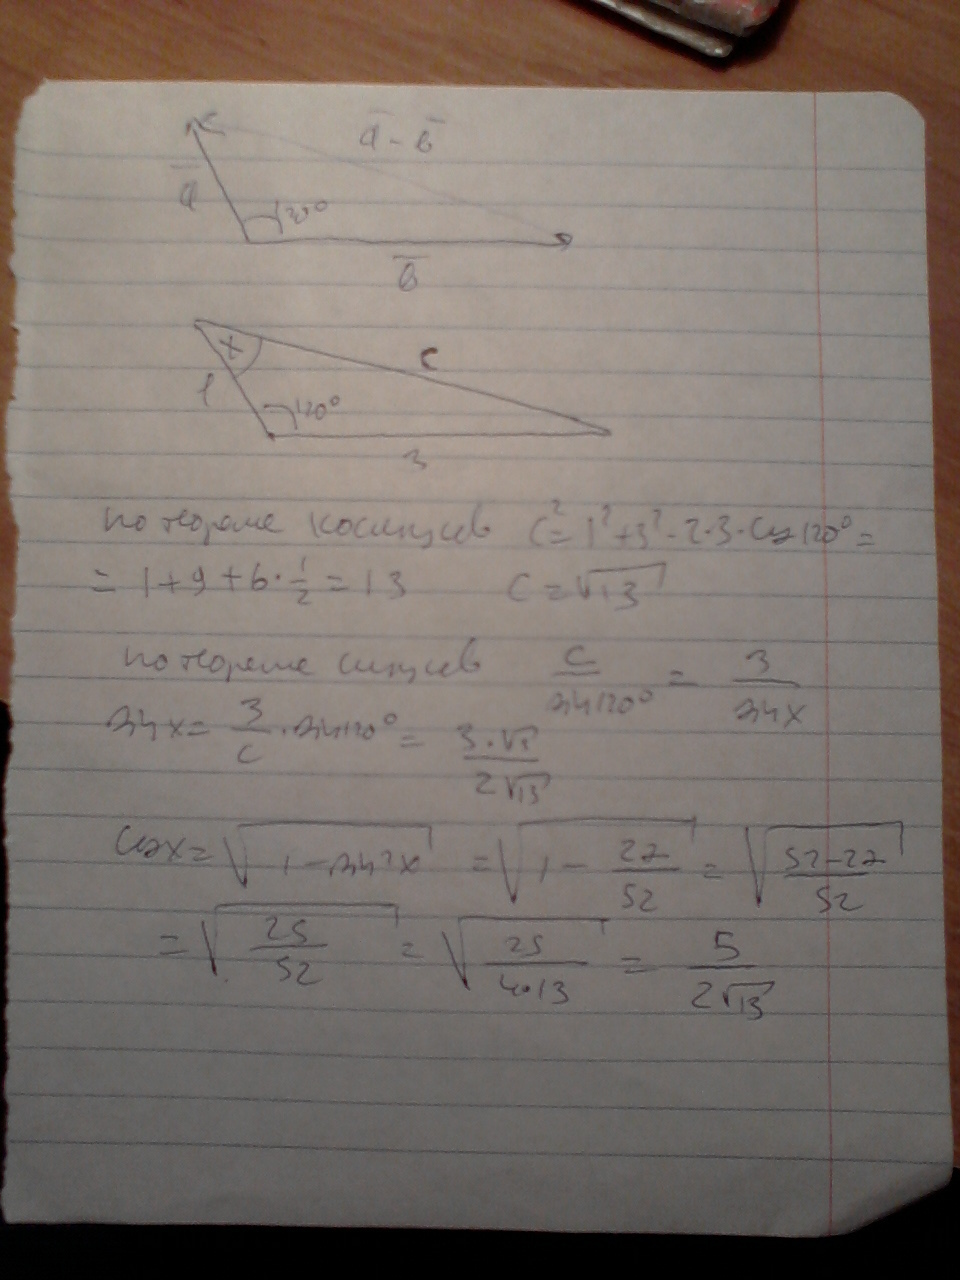 a̅ - b̅
a̅
120°
b̅
x
c
1
120°
3
по теореме косинусов c² = 1² + 3² - 2·3·cos120° =
= 1 + 9 + 6·1/2 = 13 c = √13
по теореме синусов c/sin120° = 3/sinx
sinx = 3/c · sin120° = 3·√3/2√13
cosx = √(1 - sin²x) = √(1 - 27/52) = √((52-27)/52)
= √(25/52) = √(25/4·13) = 5/2√13